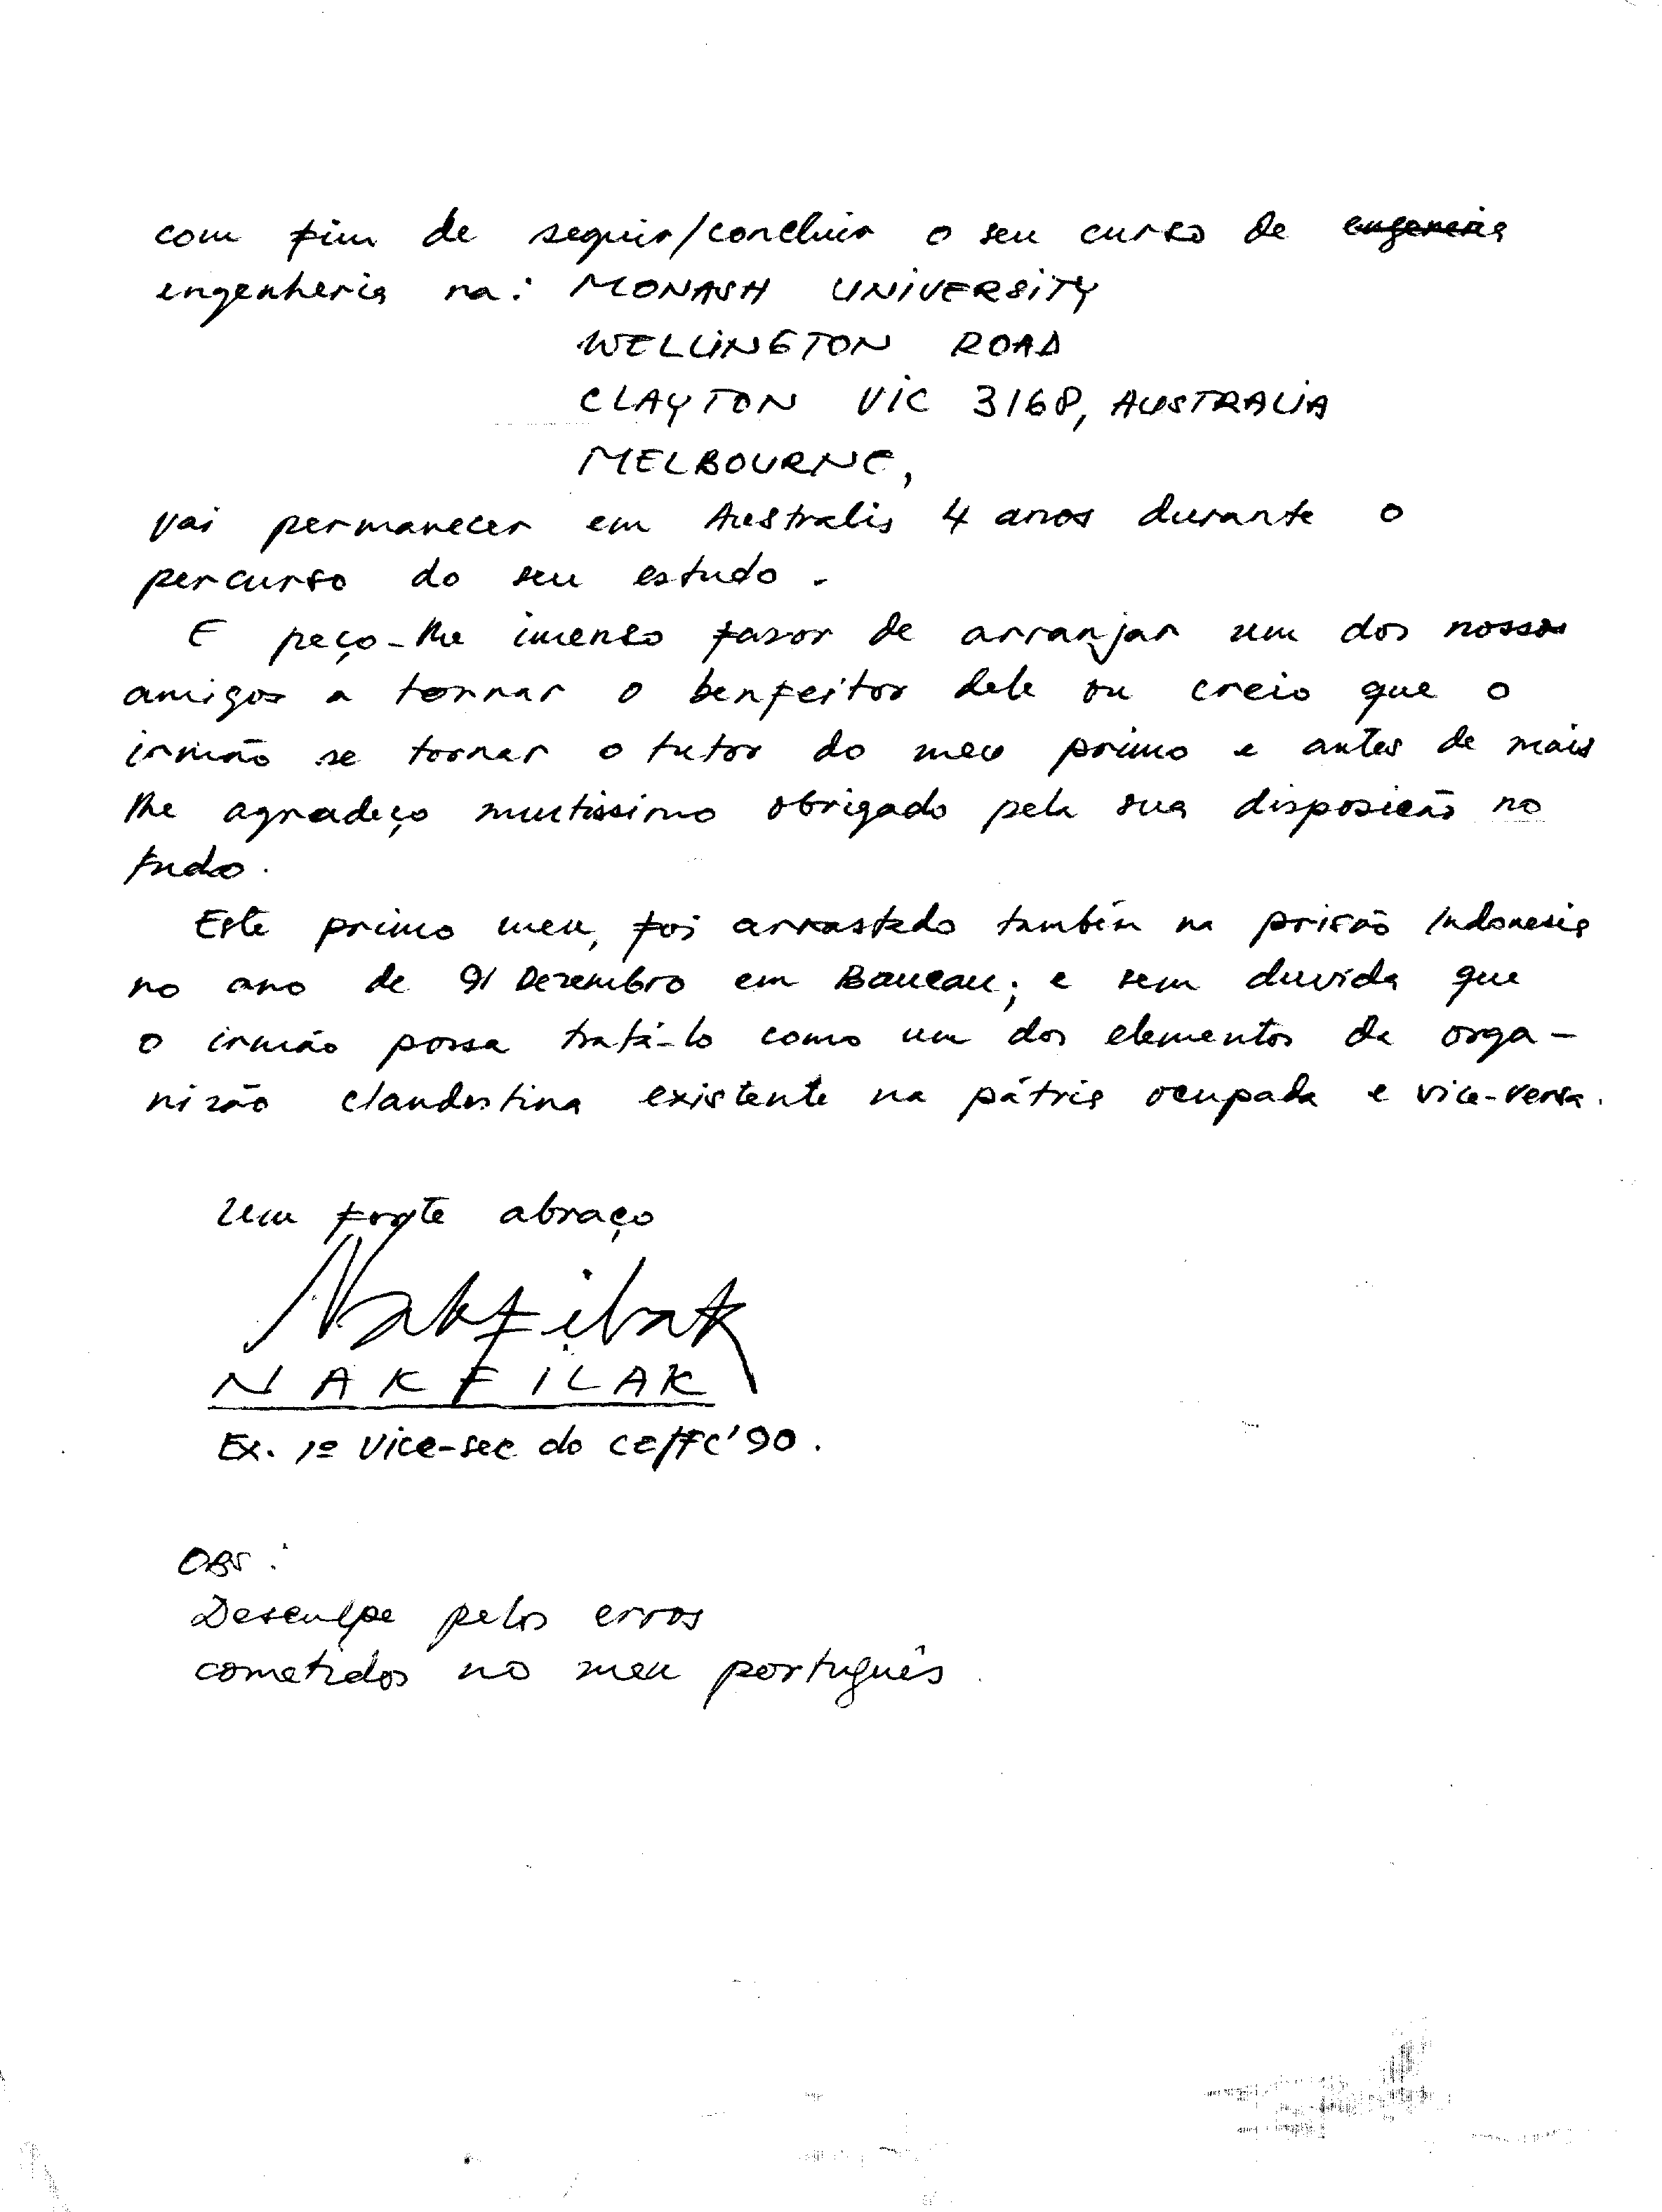 com fim de seguir/concluir o seu curso de engeneria
engenheria na: MONASH UNIVERSITY
WELLINGTON ROAD
CLAYTON VIC 3168, AUSTRALIA
MELBOURNE,
vai permanecer em Australia 4 anos durante o
percurso do seu estudo.
E peço-lhe imenso favor de arranjar um dos nossos
amigos a tornar o benfeitor dele ou creio que o
irmão se tornar o tutor do meu primo e antes de mais
lhe agradeço muitissimo obrigado pela sua disposição no
tudo.
Este primo meu, foi arrastado também na prisão Indonesia
no ano de 91 Dezembro em Baucau; e sem duvida que
o irmão possa tratá-lo como um dos elementos da orga-
nizão clandestina existente na pátria ocupada e vice-versa.
Um forte abraço
Nakfilak
NAKFILAK
Ex. 1º Vice-sec do CE/FC'90.
OBS:
Desculpe pelos erros
cometidos no meu português.